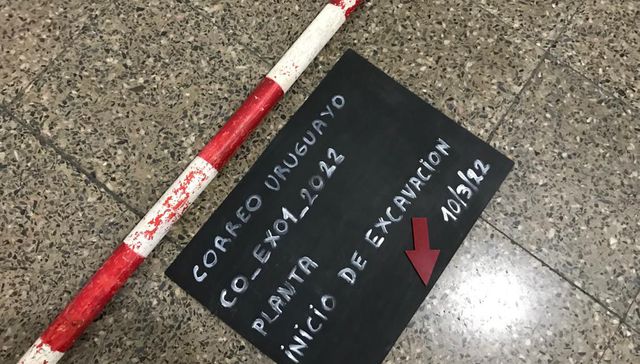 CORREO URUGUAYO
CO_EX01_2022
PLANTA
INICIO DE EXCAVACION
10/3/22